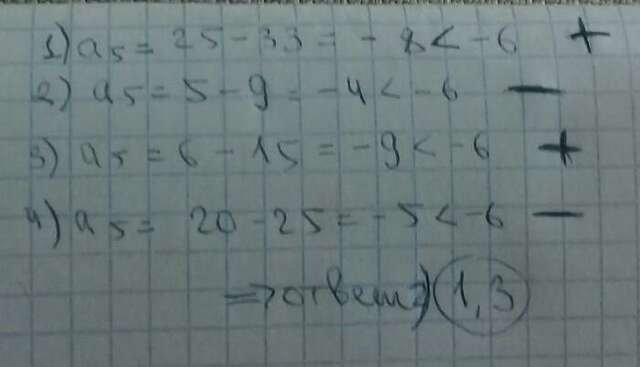 1) a5 = 25 - 33 = - 8 < - 6 +
2) a5 = 5 - 9 = - 4 < - 6 —
3) a5 = 6 - 15 = - 9 < - 6 +
4) a5 = 20 - 25 = - 5 < - 6 —
=> ответ: 1, 3